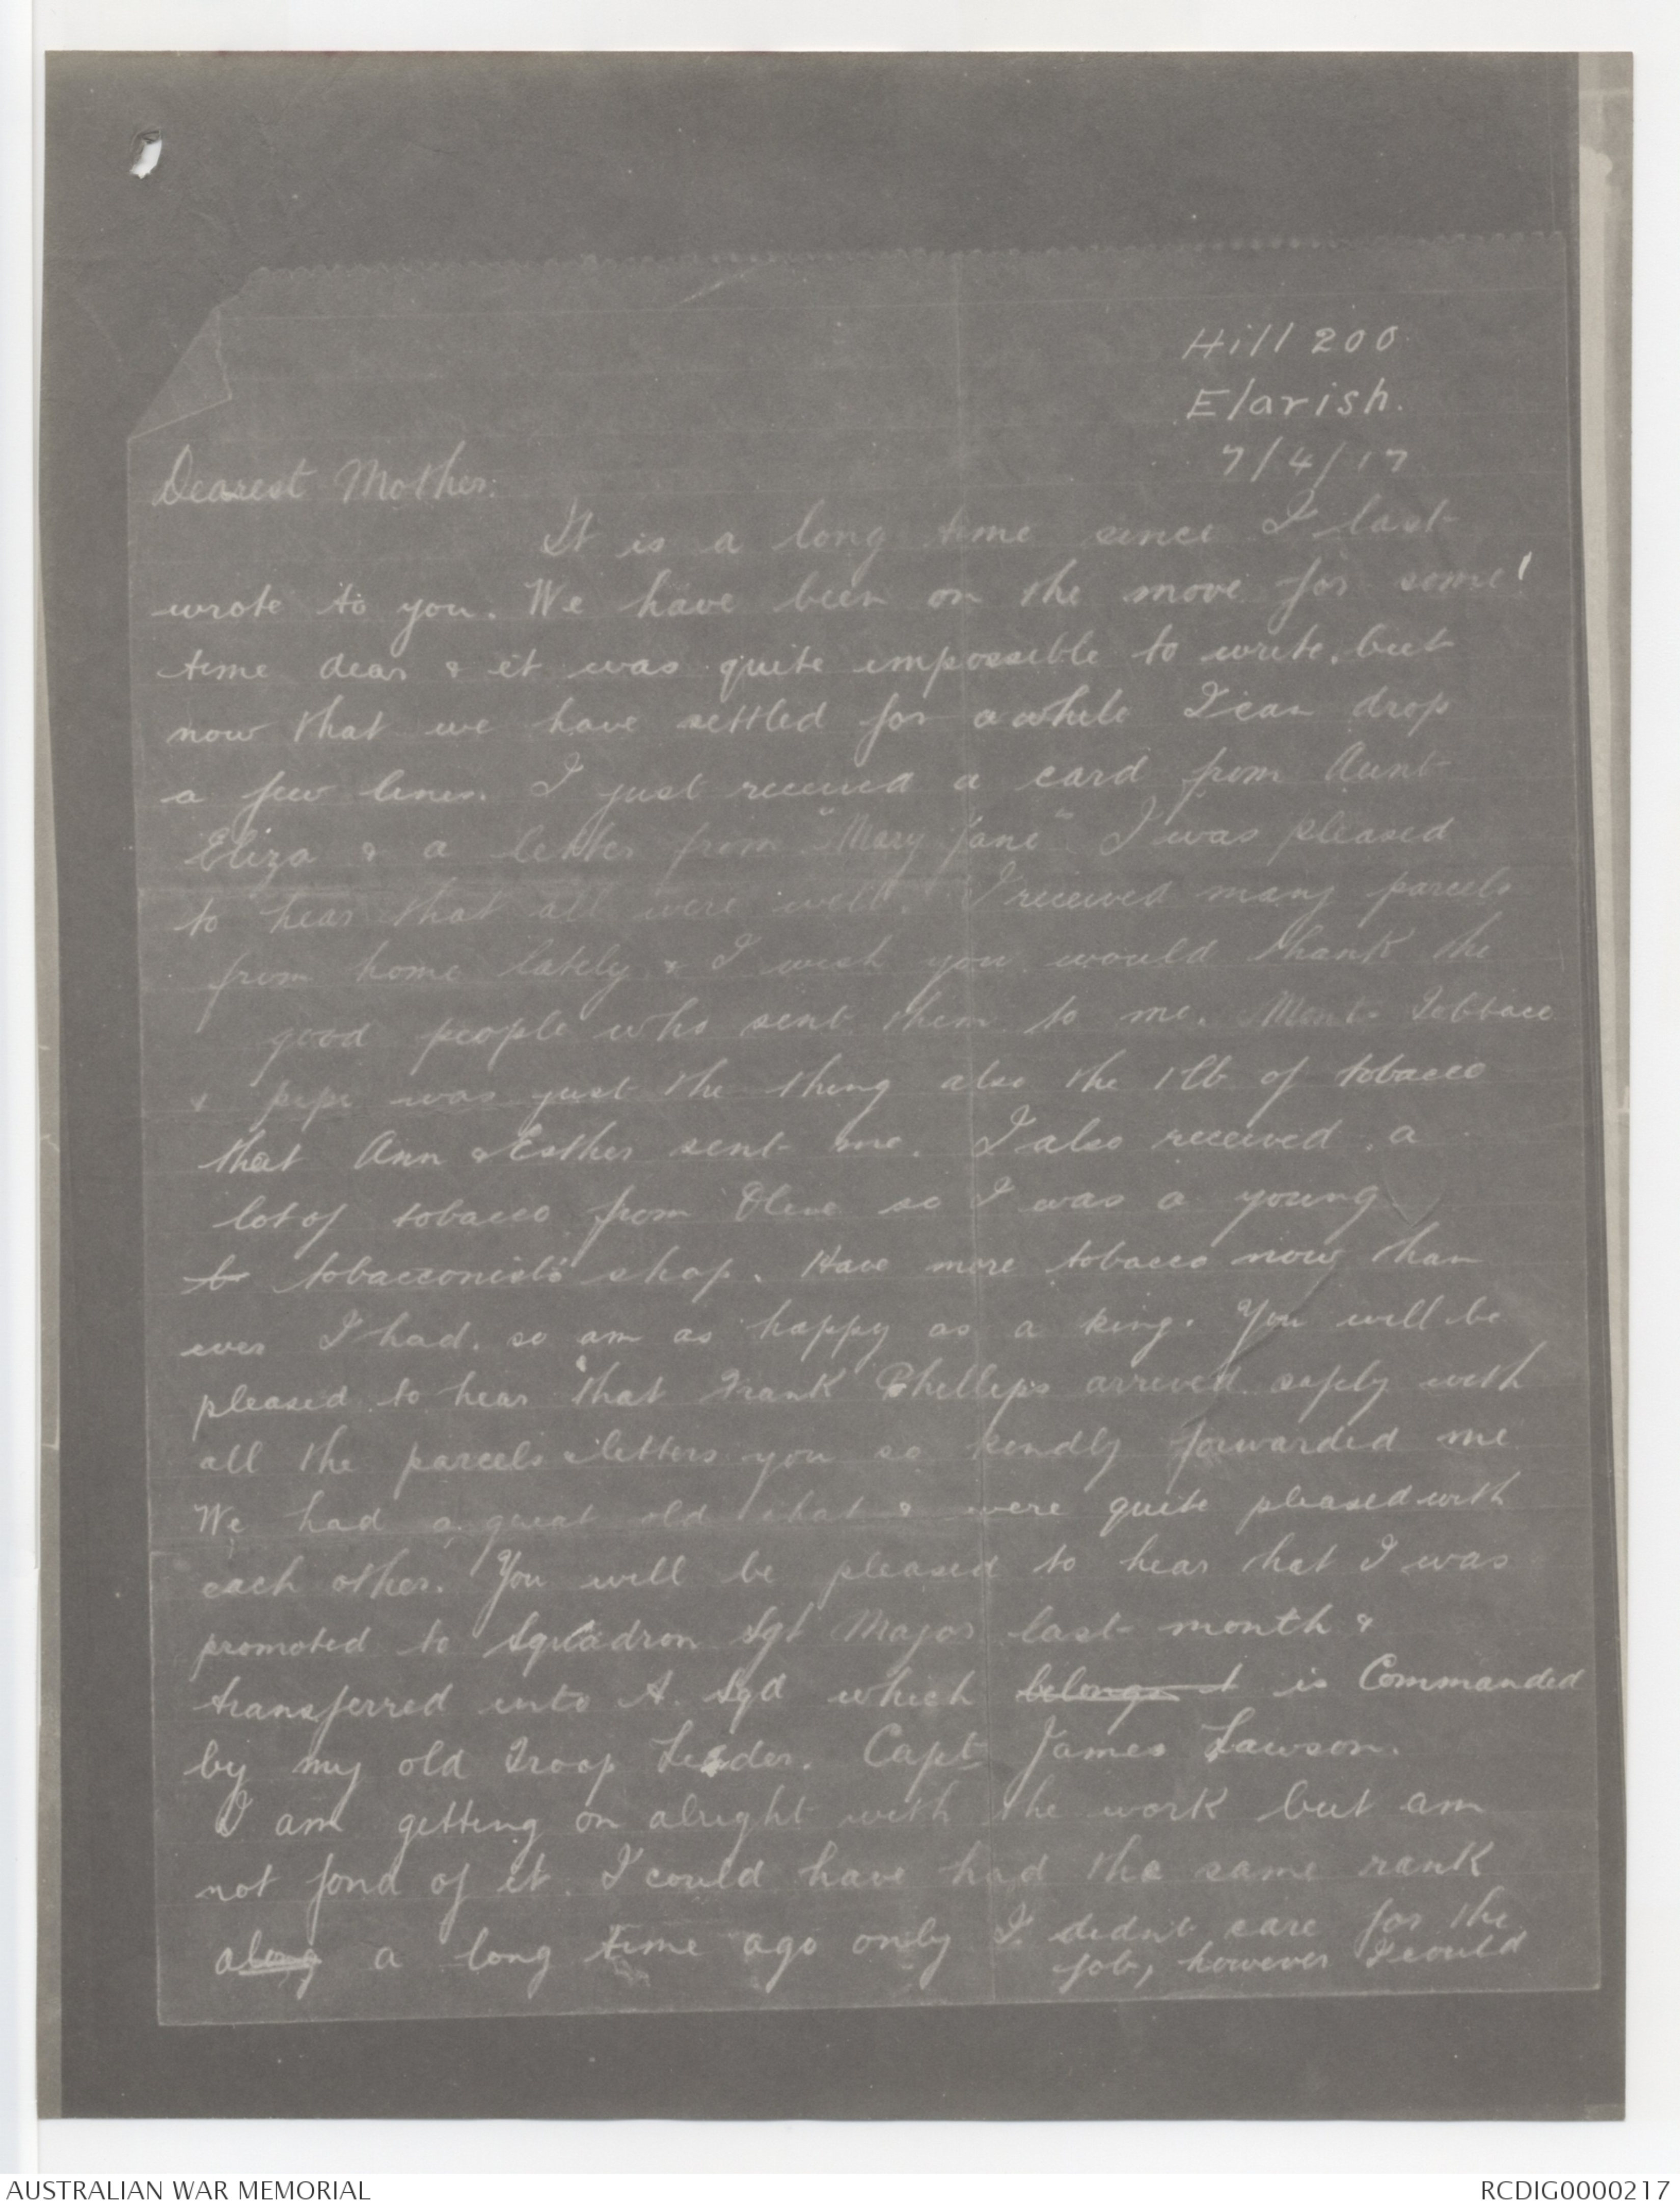 Hill 200
Elarish.
7/4/17
Dearest Mother.
It is a long time since I last
wrote to you. We have been on the move for some
time dear & it was quite impossible to write, but
now that we have settled for awhile I can drop
a few lines. I just received a card from Aunt
Eliza & a letter from "Mary Jane" I was pleased
to hear that all were well. I received many parcels
from home lately & I wish you would thank the
good people who sent them to me. Monts
& pipe was just the thing also the 1lb of tobacco
that Ann & Esther sent me. I also received a
lot of tobacco from Olive so I was a young
to tobacconist's shop. Have more tobacco now than
ever I had, so am as happy as a king. You will be
pleased to hear that Frank Phillips arrived safely with
all the parcels & letters you so kindly forwarded me
We had a great old chat & were quite pleased with
each other. You will be pleased to hear that I was
promoted to Squadron Sgt Major last month &
transferred into A. Sqd which belongs t is Commanded
by my old Troop Leader. Capt James Lawson.
I am getting on alright with the work but am
not fond of it. I could have had the same rank
along a long time ago only I didn't care for the
job, however I could
AUSTRALIAN WAR MEMORIAL
RCDIG0000217